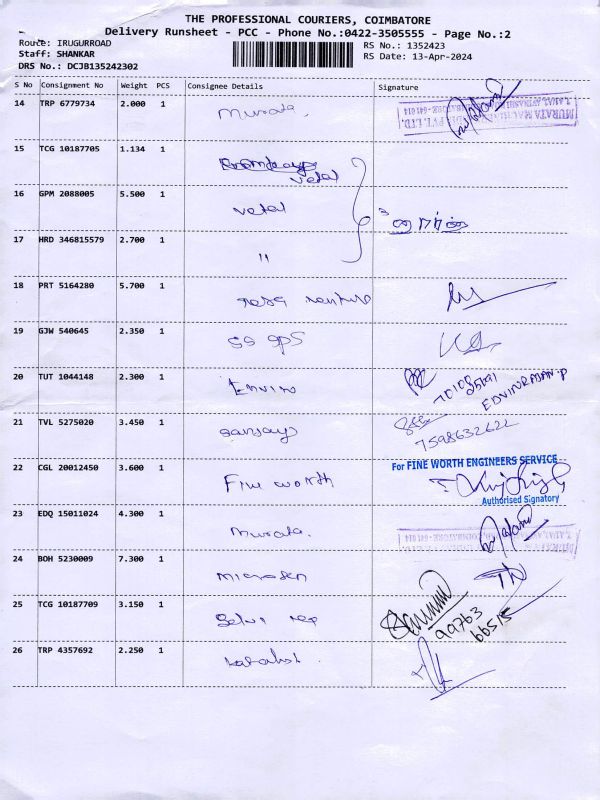 THE PROFESSIONAL COURIERS, COIMBATORE
Delivery Runsheet - PCC - Phone No.:0422-3505555 - Page No.:2
Route: IRUGURROAD
RS No.: 1352423
Staff: SHANKAR
RS Date: 13-Apr-2024
DRS No.: DCJB135242302
S No Consignment No Weight PCS Consignee Details Signature
14 TRP 6779734 2.000 1 Murata.
MURATA MACHINERY PVT. LTD.
15 TCG 10187705 1.134 1
Vetal
16 GPM 2088005 5.500 1 Vetal
17 HRD 346815579 2.700 1 "
18 PRT 5164280 5.700 1
19 GJW 540645 2.350 1 SS GPS
20 TUT 1044148 2.300 1 Edwin
EDWINRAJAN.P
21 TVL 5275020 3.450 1 Sanjay
7598632622
22 CGL 20012450 3.600 1 Fine worth
For FINE WORTH ENGINEERS SERVICE
Authorised Signatory
23 EDQ 15011024 4.300 1 Murata.
24 BOH 5230009 7.300 1 Microsen
25 TCG 10187709 3.150 1
99763
66515
26 TRP 4357692 2.250 1